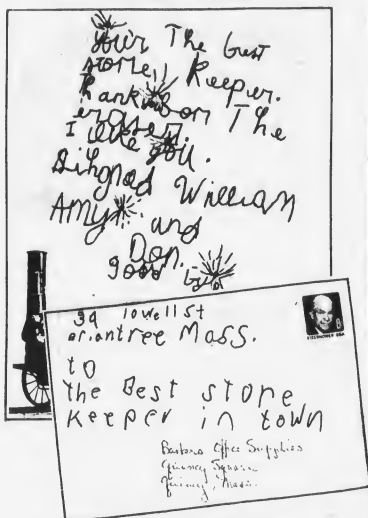 Your The best
store keeper.
Thank on The
eraser.
I like you.
Sihgnad William
Amy and
Don.
good by
39 lowell St
braintree Mass.
to
the Best store
keeper in town
Barbara Office Supplies
Quincy Square
Quincy, Mass.
EISENHOWER USA
8